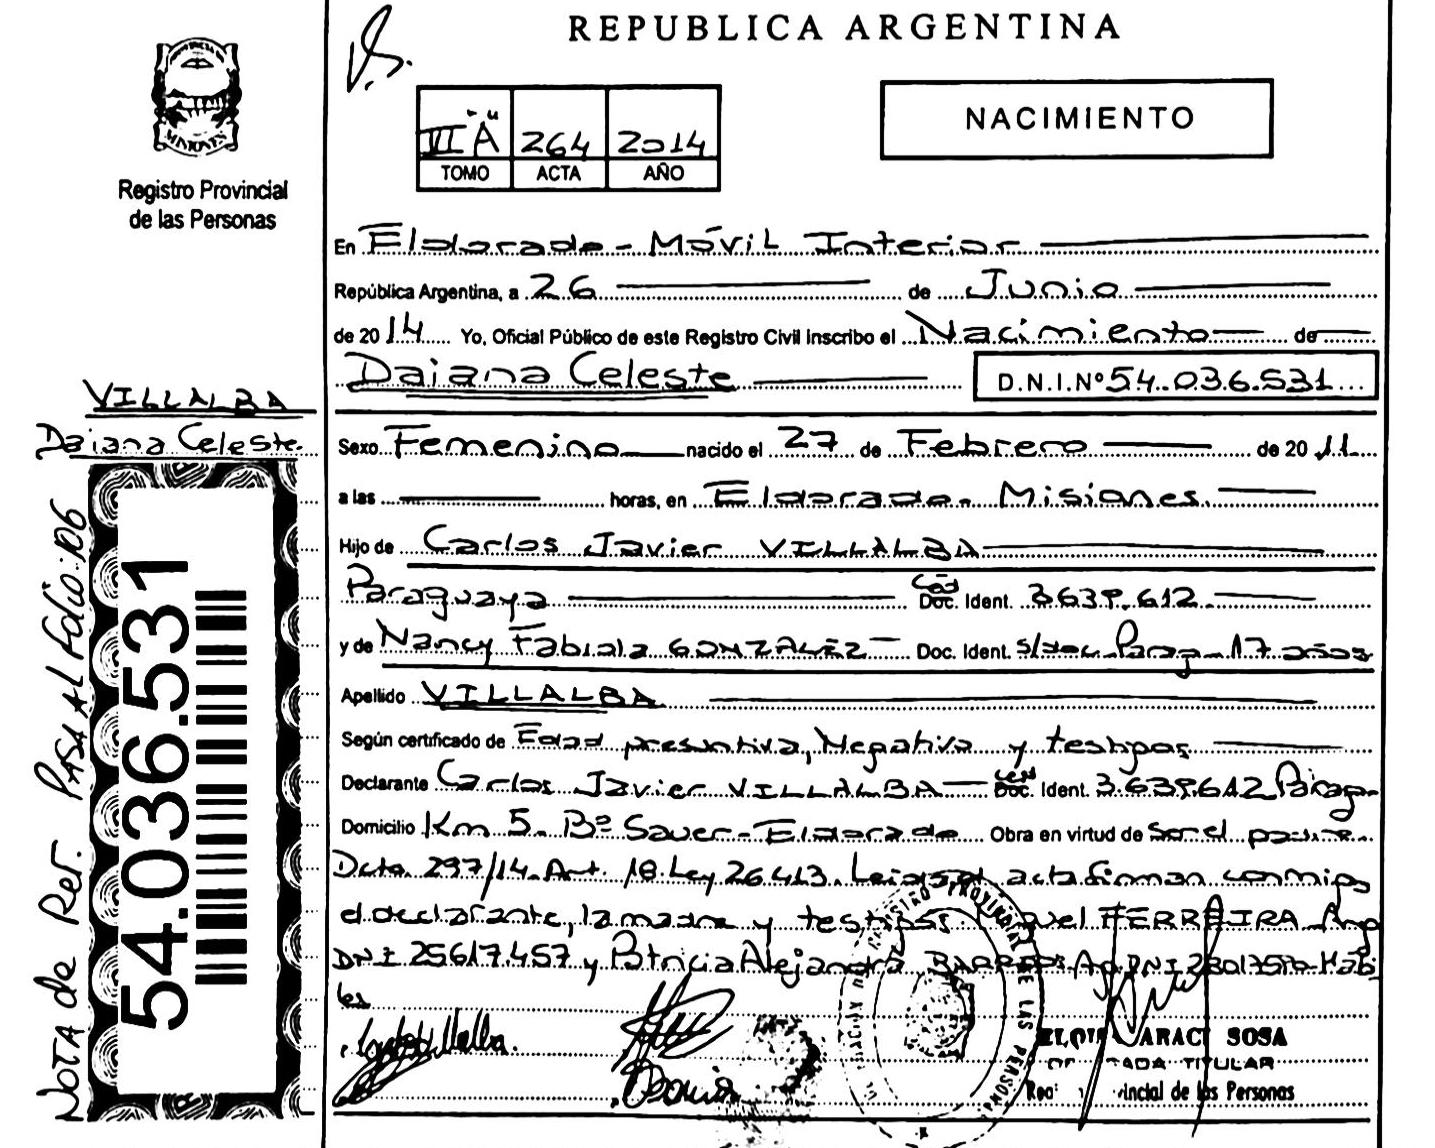 REPUBLICA ARGENTINA
MISIONES
Registro Provincial
de las Personas
III "A" 264 2014
TOMO ACTA AÑO
NACIMIENTO
En Eldorado - Móvil Interior
República Argentina, a 26 de Junio
de 2014 Yo, Oficial Público de este Registro Civil Inscribo el Nacimiento de
Daiana Celeste D.N.I.Nº 54.036.531
VILLALBA
Daiana Celeste.
Sexo Femenino nacido el 27 de Febrero de 2011
a las horas, en Eldorado - Misiones.
Hijo de Carlos Javier VILLALBA
Paraguaya Ced Doc. Ident. 3.639.612
y de Nancy Fabiola GONZALEZ Doc. Ident. s/doc. Parag. 17 años
Apellido VILLALBA
Según certificado de Edad presuntiva, Negativa y testigos
Declarante Carlos Javier VILLALBA Ced Doc. Ident. 3.639.612 Parag.
Domicilio Km 5. Bº Sauer - Eldorado Obra en virtud de Ser el padre
Dcto. 297/14. Art. 18. Ley 26.413. Leida el acta firman conmigo
el declarante, la madre y testigos: Miguel FERREIRA Arg
DNI 25617.457 y Patricia Alejandra BARRIOS Arg DNI Hábi
les
NOTA de Ref. PASA AL Folio: 106
54.036.531
REGISTRO PROVINCIAL DE LAS PERSONAS
SOSA
TITULAR
Provincial de las Personas